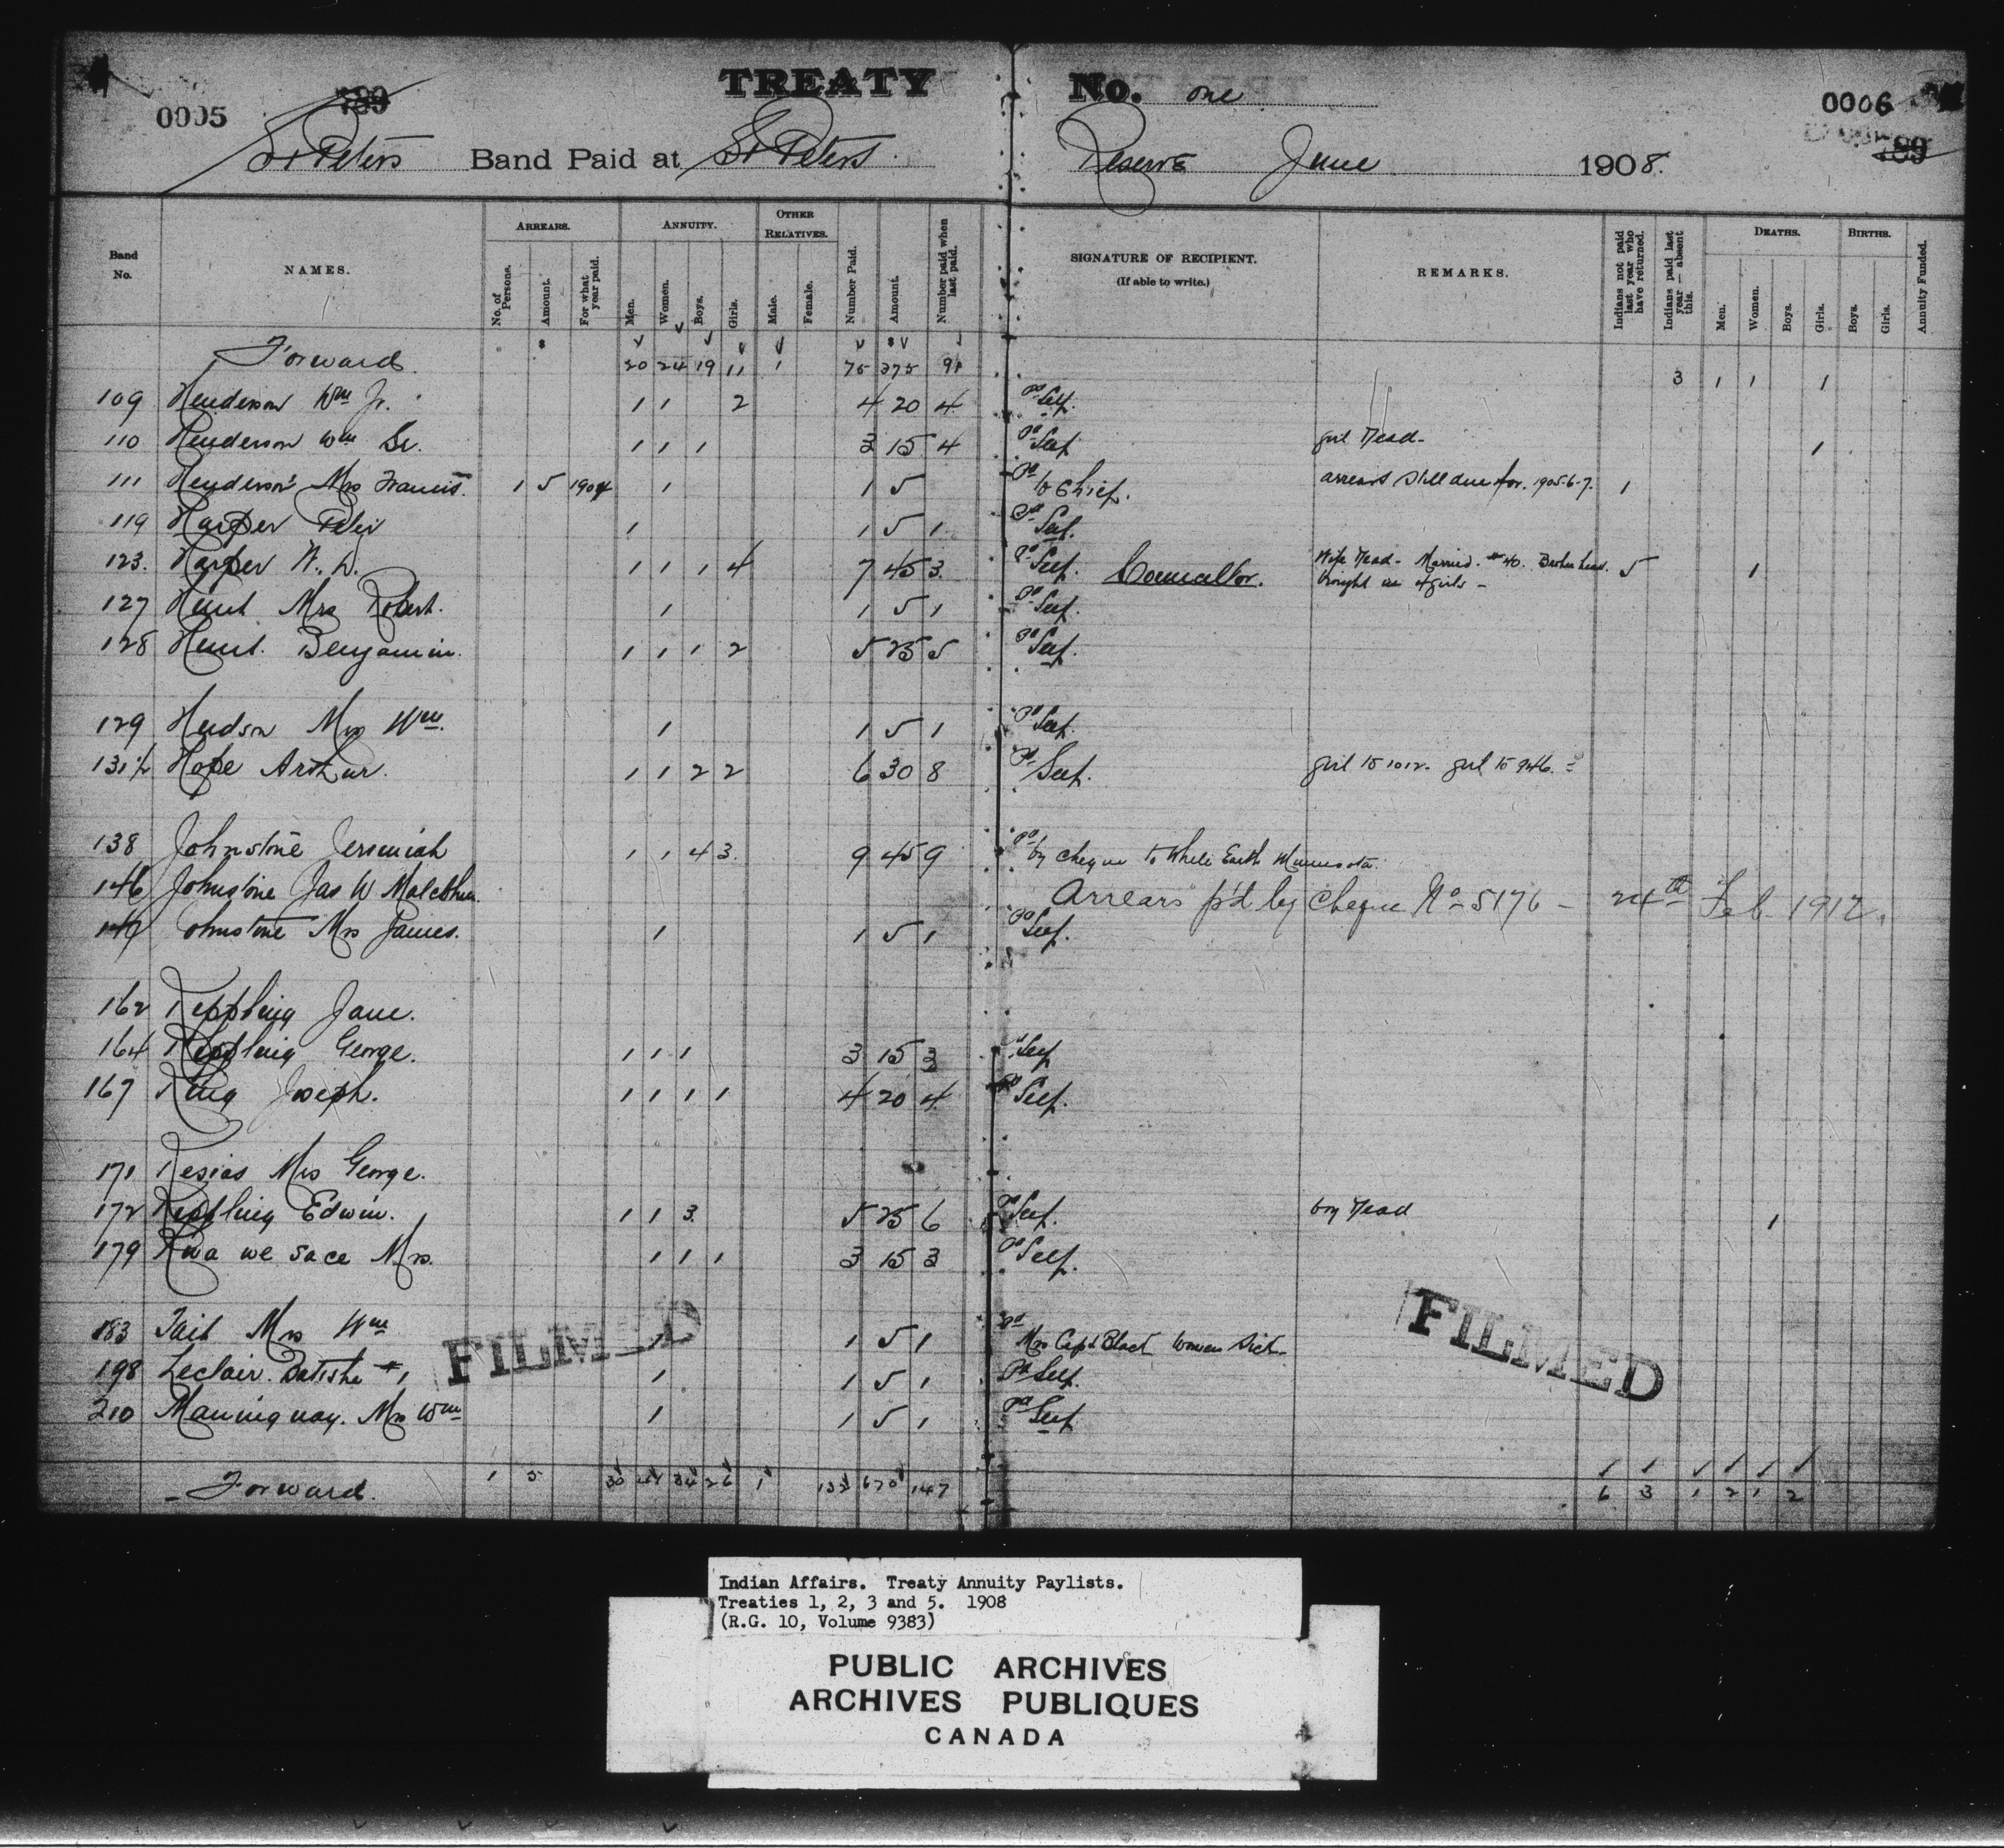 TREATY No. one
0005 789 0006 789
St Peters Band Paid at St Peters Reserve June 1908.
Band No. NAMES. ARREARS. No. of Persons. Amount. For what year paid. ANNUITY. Men. Women. Boys. Girls. OTHER RELATIVES. Male. Female. Number Paid. Amount. Number paid when last paid. SIGNATURE OF RECIPIENT. (If able to write.) REMARKS. Indians not paid last year who have returned. Indians paid last year — absent this. DEATHS. Men. Women. Boys. Girls. BIRTHS. Boys. Girls. Annuity Funded.
Forward. 20 24 19 11 1 75 375 91 3 1 1 1
109 Henderson Wm Jr. 1 1 2 4 20 4 Pd Self.
110 Henderson Wm Sr. 1 1 1 3 15 4 Pd Self girl Dead - 1
111 Henderson Mrs Francis. 1 5 1904 1 1 5 Pd to Chief. arrears still due for. 1905-6-7. 1
119 Harper Peter 1 1 5 1 Pd Self.
123. Harper W. D. 1 1 1 4 7 45 3 Pd Self. Councellor. Wife Dead - Married. #40. Brokenhead. brought in 4 girls - 5 1
127 Hunt Mrs Robert. 1 1 5 1 Pd Self.
128 Hunt. Benjamin. 1 1 1 2 5 25 5 Pd Self.
129 Hudson Mrs Wm. 1 1 5 1 Pd Self.
131½ Hope Arthur. 1 1 2 2 6 30 8 Pd Self. girl to 1012. girl to 946.
138 Johnstone Jeremiah 1 1 4 3. 9 45 9 Pd by cheque to White Earth Minnesota.
146 Johnstone Jas W
Arrears p'd by Cheque No 5176 - 24th Feb. 1912.
Johnstone Mrs James. 1 1 5 1 Pd Self.
162 Keppling Jane.
164 Keppling George. 1 1 1 3 15 3 Self
167 King Joseph. 1 1 1 1 4 20 4 Pd Self.
171 Kesias Mrs George.
172 Keppling Edwin. 1 1 3. 5 25 6 Pd Self. boy Dead 1
179 Kwa we sace Mrs. 1 1 1 3 15 3 Pd Self.
183 Tait Mrs Wm 1 1 5 1 Pd Mrs Capt Black Woman Sick -
198 Leclair. Batishe #1 1 1 5 1 Pd Self.
210 Maningway. Mrs Wm 1 1 5 1 Pd Self
FILMED FILMED
Forward. 1 5 26 1 670 147 6 3 1 2 1 2
Indian Affairs. Treaty Annuity Paylists.
Treaties 1, 2, 3 and 5. 1908
(R.G. 10, Volume 9383)
PUBLIC ARCHIVES
ARCHIVES PUBLIQUES
CANADA